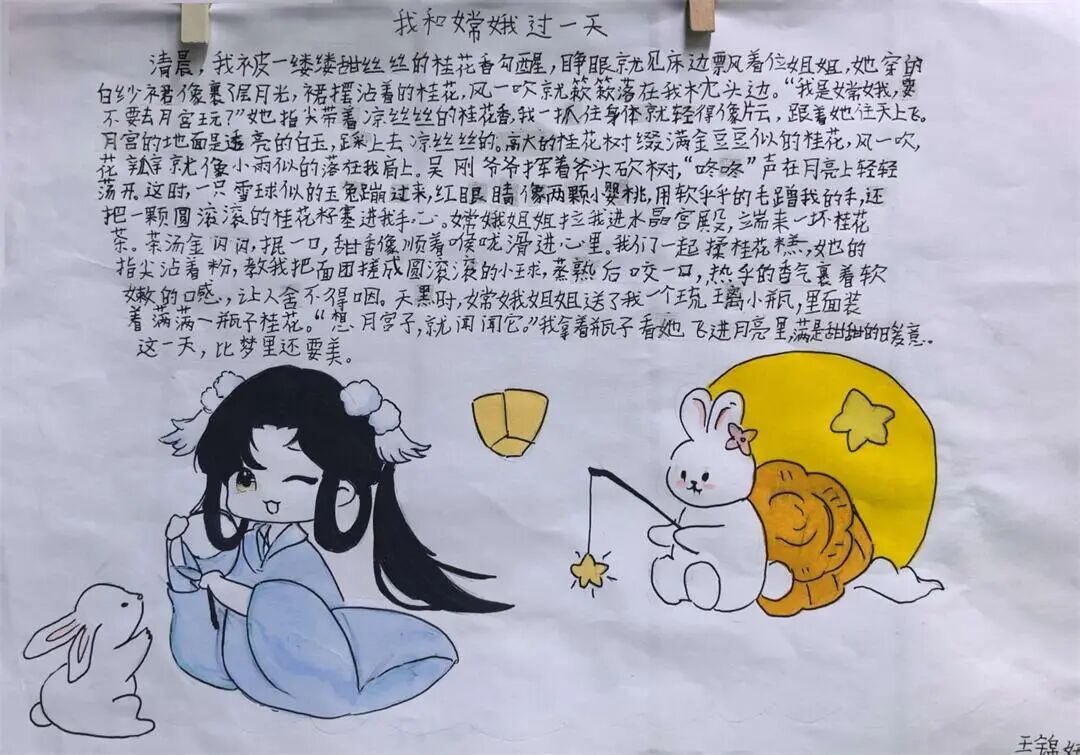 我和嫦娥过一天
清晨，我被一缕缕甜丝丝的桂花香勾醒，睁眼就见床边飘着位姐姐，她穿的
白纱裙像裹了层月光，裙摆沾着的桂花，风一吹就簌簌落在我枕头边。“我是嫦娥，要
不要去月宫玩？”她指尖带着凉丝丝的桂花香，我一抓住身体就轻得像片云，跟着她往天上飞。
月宫的地面是透亮的白玉，踩上去凉丝丝的。高大的桂花树缀满金豆豆似的桂花，风一吹，
花瓣就像小雨似的落在我肩上。吴刚爷爷挥着斧头砍树，“咚咚”声在月亮上轻轻
荡开。这时，一只雪球似的玉兔蹦过来，红眼睛像两颗小樱桃，用软乎乎的毛蹭我的手，还
把一颗圆滚滚的桂花籽塞进我手心。嫦娥姐姐拉我进水晶宫殿，端来一杯桂花
茶。茶汤金闪闪，抿一口，甜香像顺着喉咙滑进心里。我们一起揉桂花糕，她的
指尖沾着粉，教我把面团搓成圆滚滚的小球，蒸熟后咬一口，热乎的香气裹着软
嫩的口感，让人舍不得咽。天黑时，嫦娥姐姐送了我一个琉璃小瓶，里面装
着满满一瓶子桂花。“想月宫了，就闻闻它。”我拿着瓶子看她飞进月亮里，满是甜甜的暖意。
这一天，比梦里还要美。
王锦